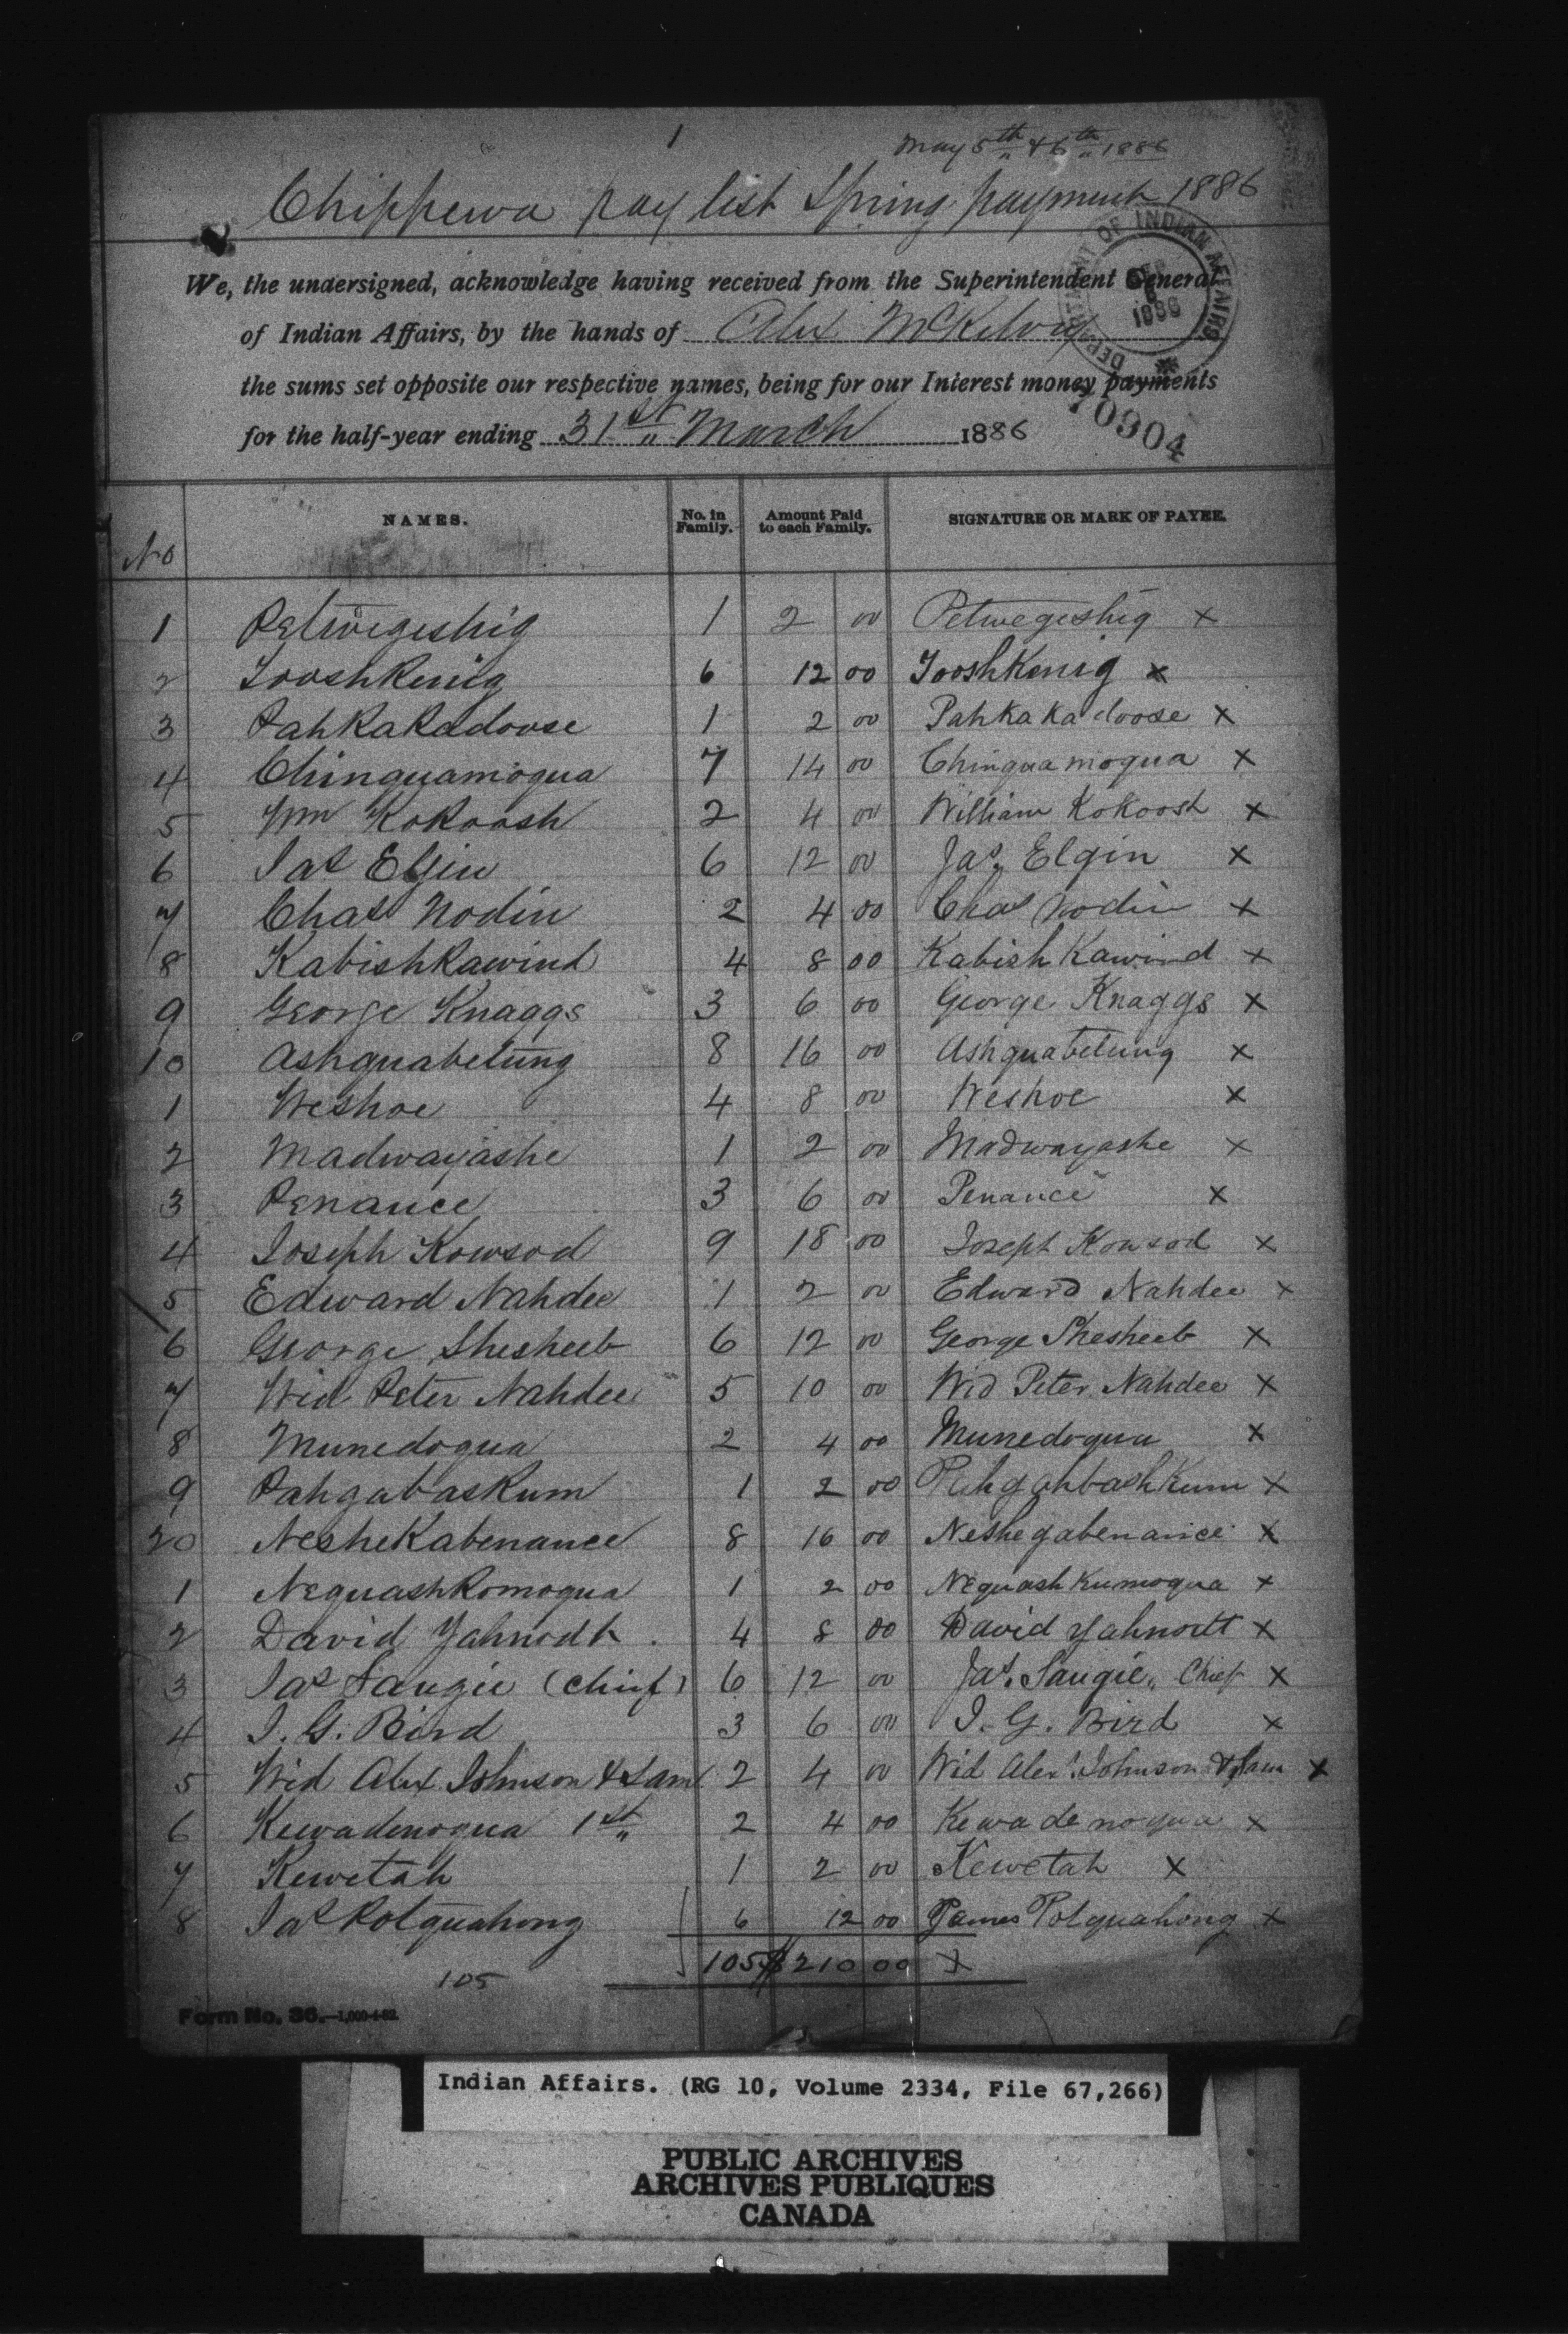 1
May 5th & 6th 1886
Chippewa pay list Spring payment 1886
We, the undersigned, acknowledge having received from the Superintendent General
of Indian Affairs, by the hands of Alex McKelvey
the sums set opposite our respective names, being for our Interest money payments
for the half-year ending 31st March 1886
DEPARTMENT OF INDIAN AFFAIRS
1886
70904
No NAMES. No. in Family. Amount Paid to each Family. SIGNATURE OR MARK OF PAYEE.
1 Petwegeshig 1 2 00 Petwegeshig x
2 Jooshkenig 6 12 00 Jooshkenig x
3 Pahkakadoose 1 2 00 Pahkakadoose x
4 Chinguamoqua 7 14 00 Chinguamoqua x
5 Wm Kokoosh 2 4 00 William Kokoosh x
6 Jas Elgin 6 12 00 Jas. Elgin x
7 Chas Nodin 2 4 00 Chas Nodin x
8 Kabishkawind 4 8 00 Kabishkawind x
9 George Knaggs 3 6 00 George Knaggs x
10 Ashquabetung 8 16 00 Ashquabetung x
1 Weshoe 4 8 00 Weshoe x
2 Madwayashe 1 2 00 Madwayashe x
3 Penance 3 6 00 Penance x
4 Joseph Kowsod 9 18 00 Joseph Kowsod x
5 Edward Nahdee 1 2 00 Edward Nahdee x
6 George Shesheeb 6 12 00 George Shesheeb x
7 Wid Peter Nahdee 5 10 00 Wid Peter Nahdee x
8 Munedoqua 2 4 00 Munedoqua x
9 Pahgabaskum 1 2 00 Pahgahbashkum x
20 Neshekabenance 8 16 00 Neshegabenance x
1 Nequashkomoqua 1 2 00 Nequashkumoqua x
2 David Yahnodt 4 8 00 David Yahnodt x
3 Jas Saugie (Chief) 6 12 00 Jas. Saugie, Chief x
4 J. G. Bird 3 6 00 J. G. Bird x
5 Wid Alex Johnson & Saml 2 4 00 Wid Alex. Johnson & Sam x
6 Kewadenoqua 1st 2 4 00 Kewadenoqua x
7 Kewetah 1 2 00 Kewetah x
8 Jas Potquahong 6 12 00 James Potquahong x
105 $210 00 x
105
Form No. 36.—1,000-4-82.
Indian Affairs. (RG 10, Volume 2334, File 67,266)
PUBLIC ARCHIVES
ARCHIVES PUBLIQUES
CANADA